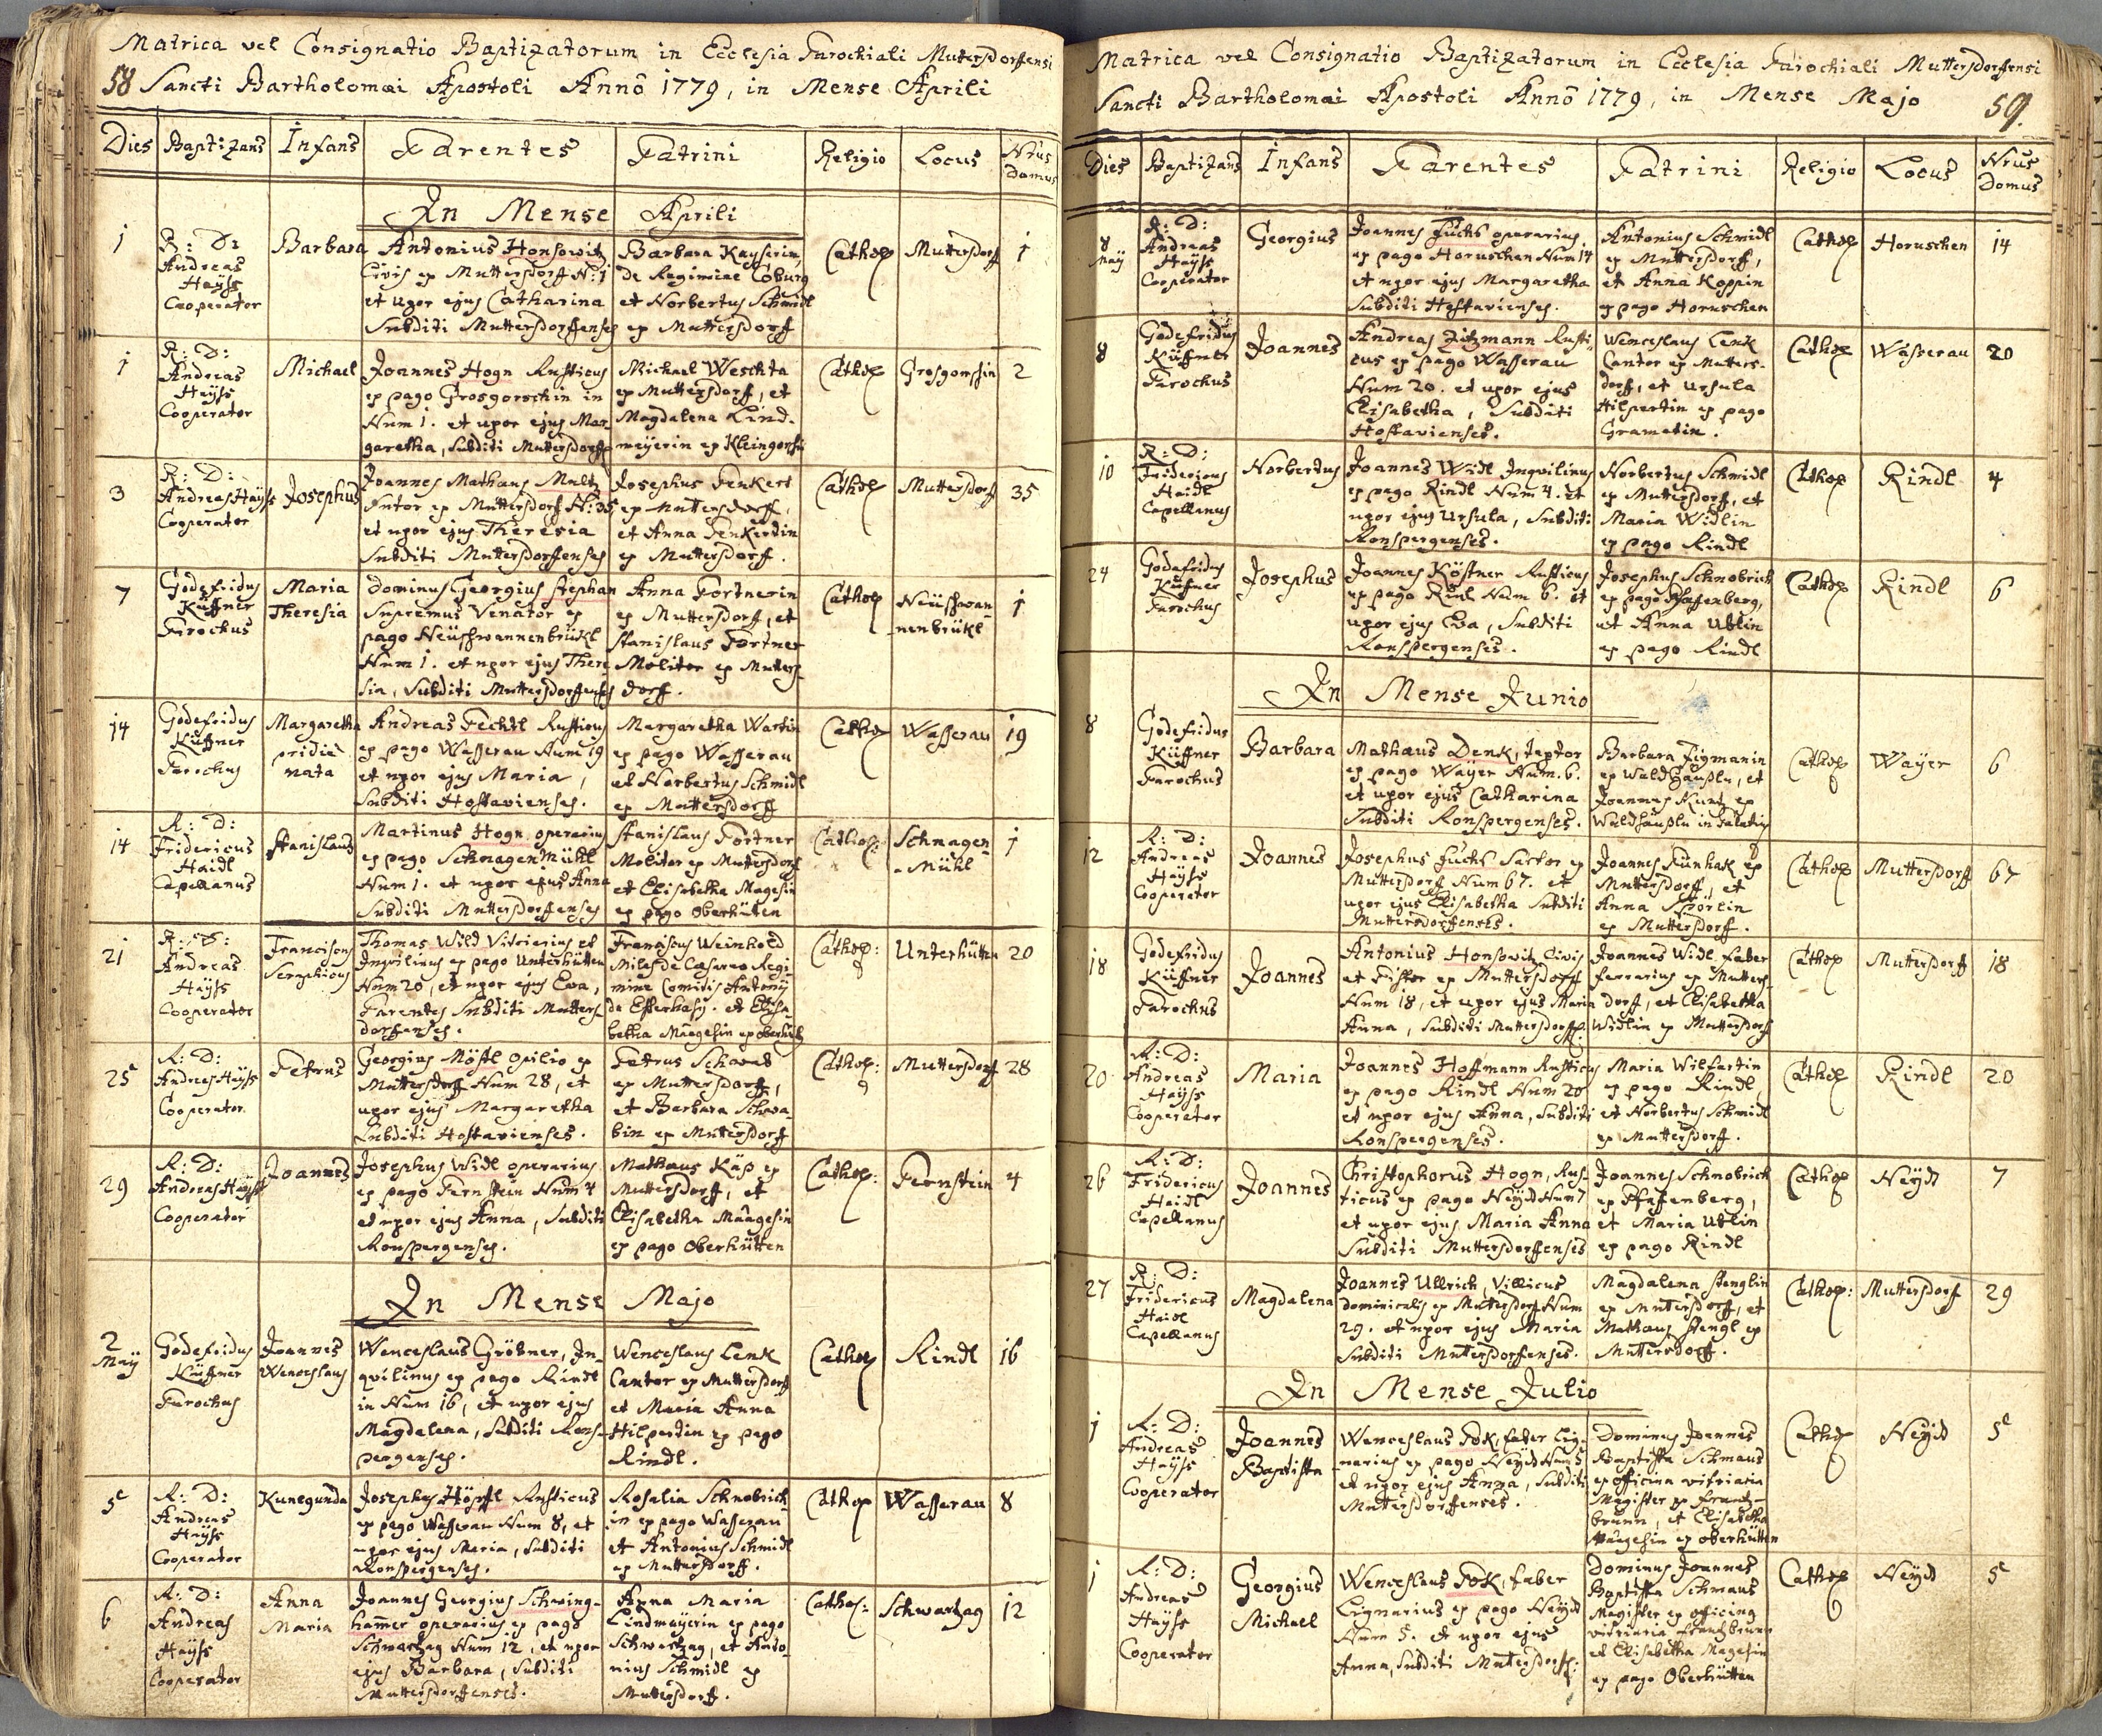 Matrica vel Consignatio Baptizatorum in Ecclesia Parochiali Muttersdorffensi
58 Sancti Bartholomæi Apostoli Annô 1779, in Mense Aprili
Dies Baptizans Infans Parentes Patrini Religio Locus Nrus Domus
In Mense Aprili
1
R: D:
Andreas
Haÿss
Cooperator
Barbara
Antonius Honsowitz
Civis ex Muttersdorf N: 1
et uxor ejus Catharina
Subditi Muttersdorffenses
Barbara Kayserin,
de Regimine Coburg
et Norbertus Schmidl
ex Muttersdorff
Cathol
Muttersdorf
1
1
R: D:
Andreas
Haÿss
Cooperator
Michael
Joannes Hogn Rusticus
ex pago Grosgorschin in
Num 1. et uxor ejus Mar-
garetha, Subditi Muttersdorff
Michael Weschta
ex Muttersdorff, et
Magdalena Lind-
meÿerin ex Kleingorschi
Cathol
Grosgorschin
2
3
R: D:
Andreas Haÿss
Cooperator
Josephus
Joannes Mathaus Multz
Sutor ex Muttersdorf N: 35
et uxor ejus Theresia
Subditi Muttersdorffenses
Josephus Penkert
ex Muttersdorff,
et Anna Penkertin
ex Muttersdorff.
Cathol
Muttersdorf
35
7
Godefridus
Küffner
Parochus
Maria
Theresia
Dominus Georgius Stephan
Supremus Venator ex
pago Neüschwannenbrükl
Num 1. et uxor ejus There-
sia, Subditi Muttersdorffenses
Anna Portnerin
ex Muttersdorff, et
Stanislaus Portner
Molitor ex Mutters-
dorff.
Cathol
Neüschwan-
nenbrükl
1
14
Godefridus
Küffner
Parochus
Margaretha
pridiè
nata
Andreas Pechtl Rusticus
ex pago Wasserau Num 19
et uxor ejus Maria,
Subditi Hostavienses.
Margaretha Wartin
ex pago Wasserau
et Norbertus Schmidl
ex Muttersdorff
Cathol
Wasserau
19
14
R: D:
Fridericus
Haidl
Capellanus
Stanislaus
Martinus Hogn operarius
ex pago Schnagenmühl
Num 1. et uxor ejus Anna
Subditi Muttersdorffenses
Stanislaus Portner
Molitor ex Muttersdorf
et Elisabetha Magesin
ex pago Oberhütten
Cathol:
Schnagen-
Mühl
1
21
R: D:
Andreas
Haÿss
Cooperator
Franciscus
Seraphicus
Thomas Wild Vitriarius et
Inquilinus ex pago Unterhütten
Num 20, et uxor ejus Eva,
Parentes Subditi Mutters-
dorffenses.
Franciscus Weinhold
Miles de Cæsareo Regi-
mine Comitis Antonÿ
de Esterhasÿ. et Elisa-
betha Maagesin ex oberhütt
Cathol:
Unterhütten
20
25
R: D:
Andreas Haÿss
Cooperator
Petrus
Georgius Möstl opilio ex
Muttersdorff Num 28, et
uxor ejus Margaretha
Subditi Hostavienses.
Petrus Schwab
ex Muttersdorff,
et Barbara Schwa-
bin ex Muttersdorff
Cathol:
Muttersdorf
28
29
R: D:
Andreas Haÿss
Cooperator
Joannes
Josephus Widl operarius
ex pago Pernstein Num 4
et uxor ejus Anna, Subditi
Ronspergenses.
Mathaus Käs ex
Muttersdorff, et
Elisabetha Maagesin
ex pago Oberhütten
Cathol:
Pernstein
4
In Mense Majo
2
Maÿ
Godefridus
Küffner
Parochus
Joannes
Wenceslaus
Wenceslaus Gröbner, In-
qvilinus ex pago Rindl
in Num 16, et uxor ejus
Magdalena, Subditi Rons-
pergenses.
Wenceslaus Lenk
Cantor ex Muttersdorf
et Maria Anna
Hilpertin ex pago
Rindl.
Cathol
Rindl
16
5
R: D:
Andreas
Haÿss
Cooperator
Kunegunda
Josephus Höpfl Rusticus
ex pago Wasserau Num 8, et
uxor ejus Maria, Subditi
Ronspergenses.
Rosalia Schnobrich-
in ex pago Wasserau
et Antonius Schmidl
ex Muttersdorff.
Cathol
Wasserau
8
6
R: D:
Andreas
Haÿss
Cooperator
Anna
Maria
Joannes Georgius Schwing-
hamer operarius ex pago
Schwartzag Num 12, et uxor
ejus Barbara, Subditi
Muttersdorffenses.
Anna Maria
Lindmaÿerin ex pago
Schwartzag, et Anto-
nius Schmidl ex
Muttersdorff.
Cathol:
Schwartzag
12
Matrica vel Consignatio Baptizatorum in Ecclesia Parochiali Muttersdorffensi
Sancti Bartholomæi Apostoli Annô 1779, in Mense Majo 59.
Dies Baptizans Infans Parentes Patrini Religio Locus Nrus Domus
8
Maÿ
R: D:
Andreas
Haÿss
Cooperator
Georgius
Joannes Fuchs operarius
ex pago Horuschen Num 14
et uxor ejus Margaretha
Subditi Hostavienses.
Antonius Schmidl
ex Muttersdorff,
et Anna Koppin
ex pago Horuschen
Cathol
Horuschen
14
8
Godefridus
Küffner
Parochus
Joannes
Andreas Zitzmann Rusti-
cus ex pago Wasserau
Num 20. et uxor ejus
Elisabetha, Subditi
Hostavienses.
Wenceslaus Lenk
Cantor ex Mutters-
dorff, et Ursula
Hilpertin ex pago
Grametin.
Cathol
Wasserau
20
10
R: D:
Fridericus
Haidl
Capellanus
Norbertus
Joannes Widl Inqvilinus
ex pago Rindl Num 4. et
uxor ejus Ursula, Subditi
Ronspergenses.
Norbertus Schmidl
ex Muttersdorff, et
Maria Widlin
ex pago Rindl
Cathol
Rindl
4
24
Godefridus
Küffner
Parochus
Josephus
Joannes Köstner Rusticus
ex pago Rindl Num 6. et
uxor ejus Eva, Subditi
Ronspergenses.
Josephus Schnobrich
ex pago Pfaffenberg,
et Anna Ublin
ex pago Rindl
Cathol
Rindl
6
In Mense Junio
8
Godefridus
Küffner
Parochus
Barbara
Mathæus Denk, textor
ex pago Waÿer Num. 6.
et uxor ejus Catharina
Subditi Ronspergenses.
Barbara Pigmanin
ex Waldhäußln, et
Joannes Kuntz ex
Waldhäußln in Palatin
Cathol
Waÿer
6
12
R: D:
Andreas
Haÿss
Cooperator
Joannes
Josephus Fuchs Sartor ex
Muttersdorff Num 67. et
uxor ejus Elisabetha Subditi
Muttersdorffenses.
Joannes Künhak ex
Muttersdorff, et
Anna Spörlin
ex Muttersdorff.
Cathol
Muttersdorff
67
18
Godefridus
Küffner
Parochus
Joannes
Antonius Honsowitz Civis
et Pistor ex Muttersdorff
Num 18, et uxor ejus Maria
Anna, Subditi Muttersdorff.
Joannes Widl faber
ferrarius ex Mutters-
dorff, et Elisabetha
Widlin ex Muttersdorff
Cathol
Muttersdorff
18
20
R: D:
Andreas
Haÿss
Cooperator
Maria
Joannes Hoffmann Rusticus
ex pago Rindl Num 20
et uxor ejus Anna, Subditi
Ronspergenses.
Maria Wilfartin
ex pago Rindl,
et Norbertus Schmidl
ex Muttersdorff.
Cathol
Rindl
20
26
R: D:
Fridericus
Haidl
Capellanus
Joannes
Christophorus Hogn, Rus-
ticus ex pago Neÿd Num 7
et uxor ejus Maria Anna
Subditi Muttersdorffenses
Joannes Schnobrich
ex Pfafenberg,
et Maria Ublin
ex pago Rindl
Cathol
Neÿd
7
27
R: D:
Fridericus
Haidl
Capellanus
Magdalena
Joannes Ullrich, Villicus
dominicalis ex Muttersdorf Num
29. et uxor ejus Maria
Subditi Muttersdorffenses.
Magdalena Stenglin
ex Muttersdorff, et
Mathaus Stengl ex
Muttersdorff.
Cathol:
Muttersdorf
29
In Mense Julio
1
R: D:
Andreas
Haÿss
Cooperator
Joannes
Baptista
Wenceslaus Pok, faber Lig-
narius ex pago Neÿd Num 5
et uxor ejus Anna, Subditi
Muttersdorffenses.
Dominus Joannes
Baptista Schmaus
ex officina vitriaria
Magister ex Frantz-
brunn, et Elisabetha
Maagesin ex oberhütten
Cathol
Neÿd
5
1
R: D:
Andreas
Haÿss
Cooperator
Georgius
Michael
Wenceslaus Pok, faber
Lignarius ex pago Neÿd
Num 5. et uxor ejus
Anna, Subditi Muttersdorff:
Dominus Joannes
Baptista Schmaus
Magister ex officina
vitriaria Frantzbrunn
et Elisabetha Magesin
ex pago Oberhütten
Cathol
Neÿd
5